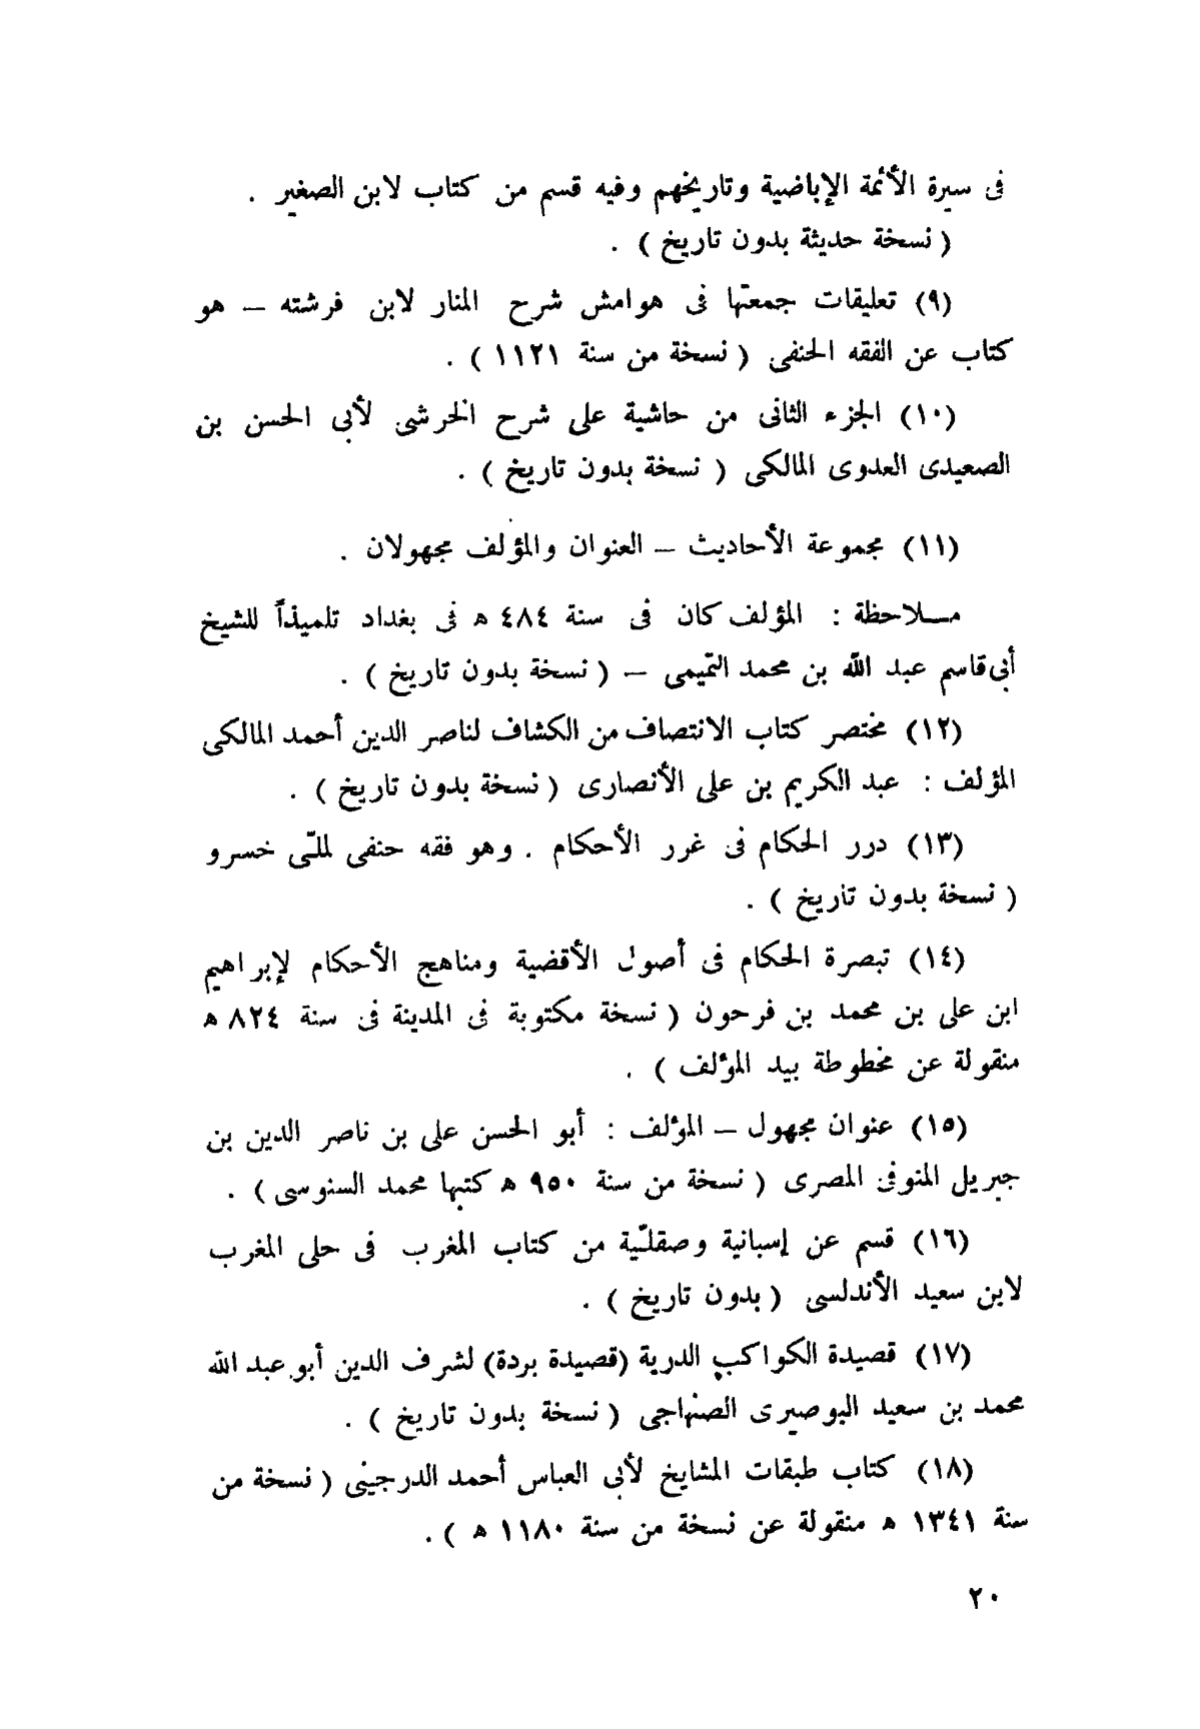 فى سيرة الأئمة الإباضية وتاريخهم وفيه قسم من كتاب لابن الصغير .
( نسخة حديثة بدون تاريخ ) .
(٩) تعليقات جمعتها فى هوامش شرح المنار لابن فرشته – هو
كتاب عن الفقه الحنفى ( نسخة من سنة ١١٢١ ) .
(١٠) الجزء الثانى من حاشية على شرح الخرشى لأبى الحسن بن
الصعيدى العدوى المالكى ( نسخة بدون تاريخ ) .
(١١) مجموعة الأحاديث – العنوان والمؤلف مجهولان .
مــلاحظة : المؤلف كان فى سنة ٤٨٤ ه فى بغداد تلميذاً للشيخ
أبى قاسم عبد الله بن محمد التميمى – ( نسخة بدون تاريخ ) .
(١٢) مختصر كتاب الانتصاف من الكشاف لناصر الدين أحمد المالكى
المؤلف : عبد الكريم بن على الأنصارى ( نسخة بدون تاريخ ) .
(١٣) درر الحكام فى غرر الأحكام . وهو فقه حنفى لملّى خسرو
( نسخة بدون تاريخ ) .
(١٤) تبصرة الحكام فى أصول الأقضية ومناهج الأحكام لإبراهيم
ابن على بن محمد بن فرحون ( نسخة مكتوبة فى المدينة فى سنة ٨٢٤ ه
منقولة عن مخطوطة بيد المؤلف ) .
(١٥) عنوان مجهول – المؤلف : أبو الحسن على بن ناصر الدين بن
جبريل المنوفى المصرى ( نسخة من سنة ٩٥٠ ه كتبها محمد السنوسى ) .
(١٦) قسم عن إسبانية وصقلّية من كتاب المغرب فى حلى المغرب
لابن سعيد الأندلسى ( بدون تاريخ ) .
(١٧) قصيدة الكواكب الدرية (قصيدة بردة) لشرف الدين أبو عبد الله
محمد بن سعيد البوصيرى الصنهاجى ( نسخة بدون تاريخ ) .
(١٨) كتاب طبقات المشايخ لأبى العباس أحمد الدرجينى ( نسخة من
سنة ١٣٤١ ه منقولة عن نسخة من سنة ١١٨٠ ه ) .
٢٠